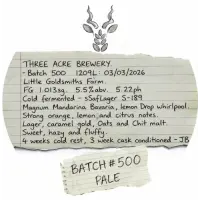 THREE ACRE BREWERY
- Batch 500 1209L: 03/03/2026
Little Goldsmiths Farm.
FG 1.013sg. 5.5%abv. 5.22ph
Cold fermented - SafLager S-189
Magnum Mandarina Bavaria, Lemon Drop Whirlpool.
Strong orange, lemon and citrus notes.
Lager, caramel gold, Oats and Chit malt.
Sweet, hazy and fluffy.
4 weeks cold rest, 3 week cask conditioned - JB
BATCH #500
PALE